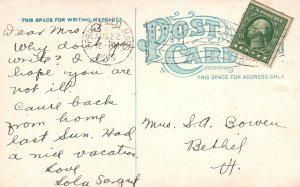 THIS SPACE FOR WRITING MESSAGES
POST CARD
THIS SPACE FOR ADDRESS ONLY
Dear Mrs.
Why don't
write? I
hope you are
not ill.
Came back
from home
last Sun. Had
a nice vacation
Love
Lola
Mrs. S.A. Bowen
Bethel
Vt.